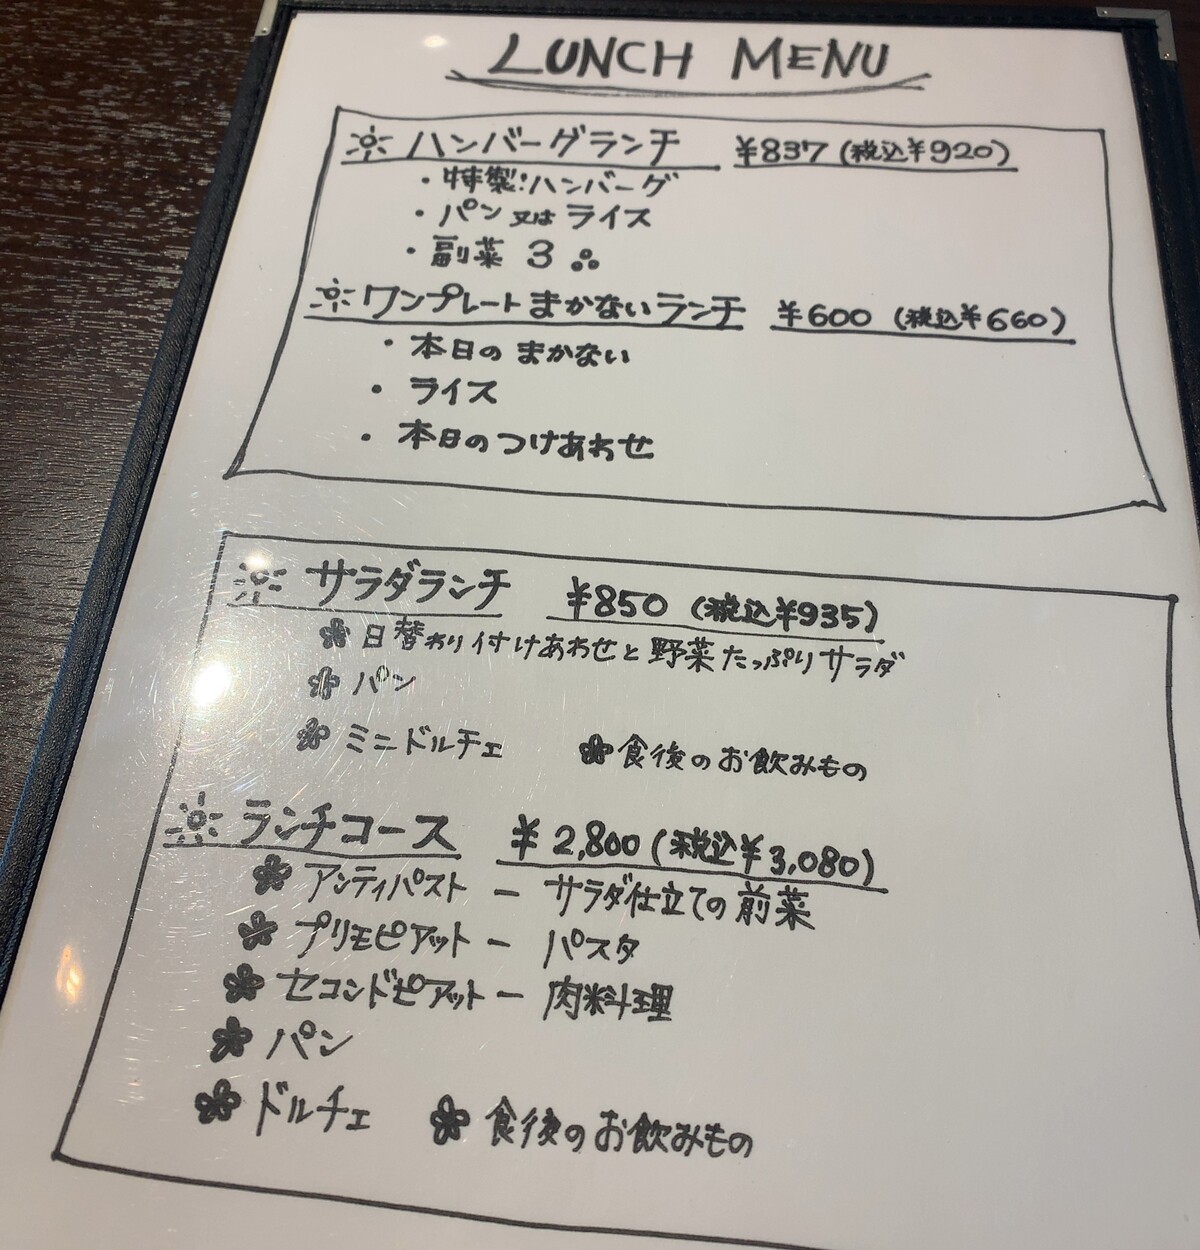 LUNCH MENU
ハンバーグランチ ¥837 (税込¥920)
・特製!ハンバーグ
・パン又はライス
・副菜 3
ワンプレートまかないランチ ¥600 (税込¥660)
・本日のまかない
・ライス
・本日のつけあわせ
サラダランチ ¥850 (税込¥935)
日替わり付けあわせと野菜たっぷりサラダ
パン
ミニドルチェ 食後のお飲みもの
ランチコース ¥2,800 (税込¥3,080)
アンティパスト － サラダ仕立ての前菜
プリモピアット － パスタ
セコンドピアット － 肉料理
パン
ドルチェ 食後のお飲みもの